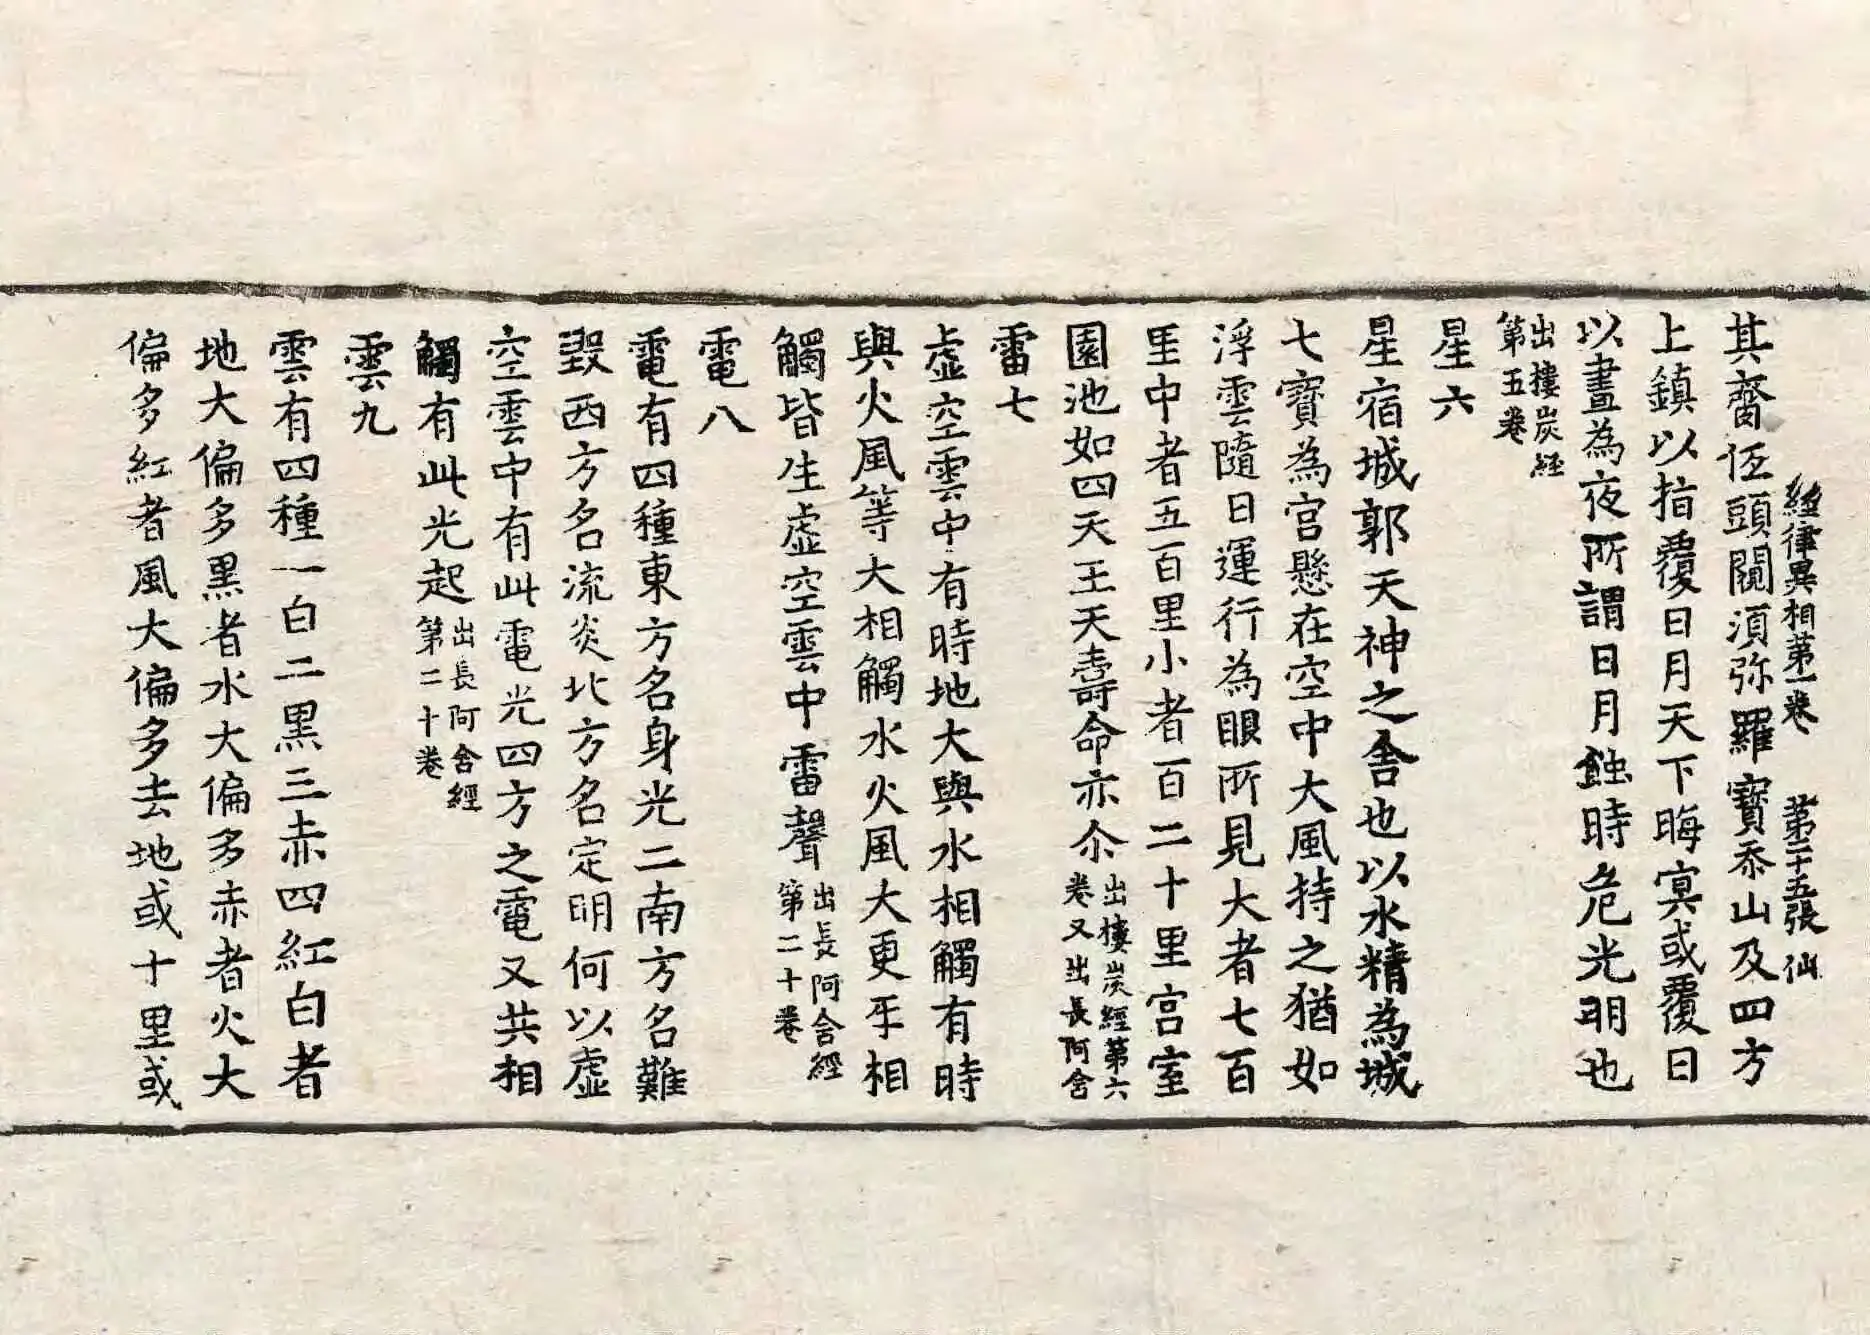 經律異相第一卷 第二十五張 仙
其齎伍頭闚湏弥羅寶黍山及四方
上鎮以指覆日月天下晦㝠或覆日
以晝為夜所謂日月蝕時危光明也
出樓炭經
第五卷
星六
星宿城郭天神之舍也以水精為城
七寶為宫懸在空中大風持之猶如
浮雲隨日運行為眼所見大者七百
里中者五百里小者百二十里宫室
園池如四天王天壽命亦尒出樓炭經第六
卷又出長阿含
雷七
虛空雲中有時地大與水相觸有時
與火風等大相觸水火風大更㸦相
觸皆生虛空雲中雷聲出長阿含經
第二十卷
電八
電有四種東方名身光二南方名難
毀西方名流炎北方名定明何以虛
空雲中有此電光四方之電又共相
觸有此光起出長阿含經
第二十卷
雲九
雲有四種一白二黑三赤四紅白者
地大偏多黑者水大偏多赤者火大
偏多紅者風大偏多去地或十里或